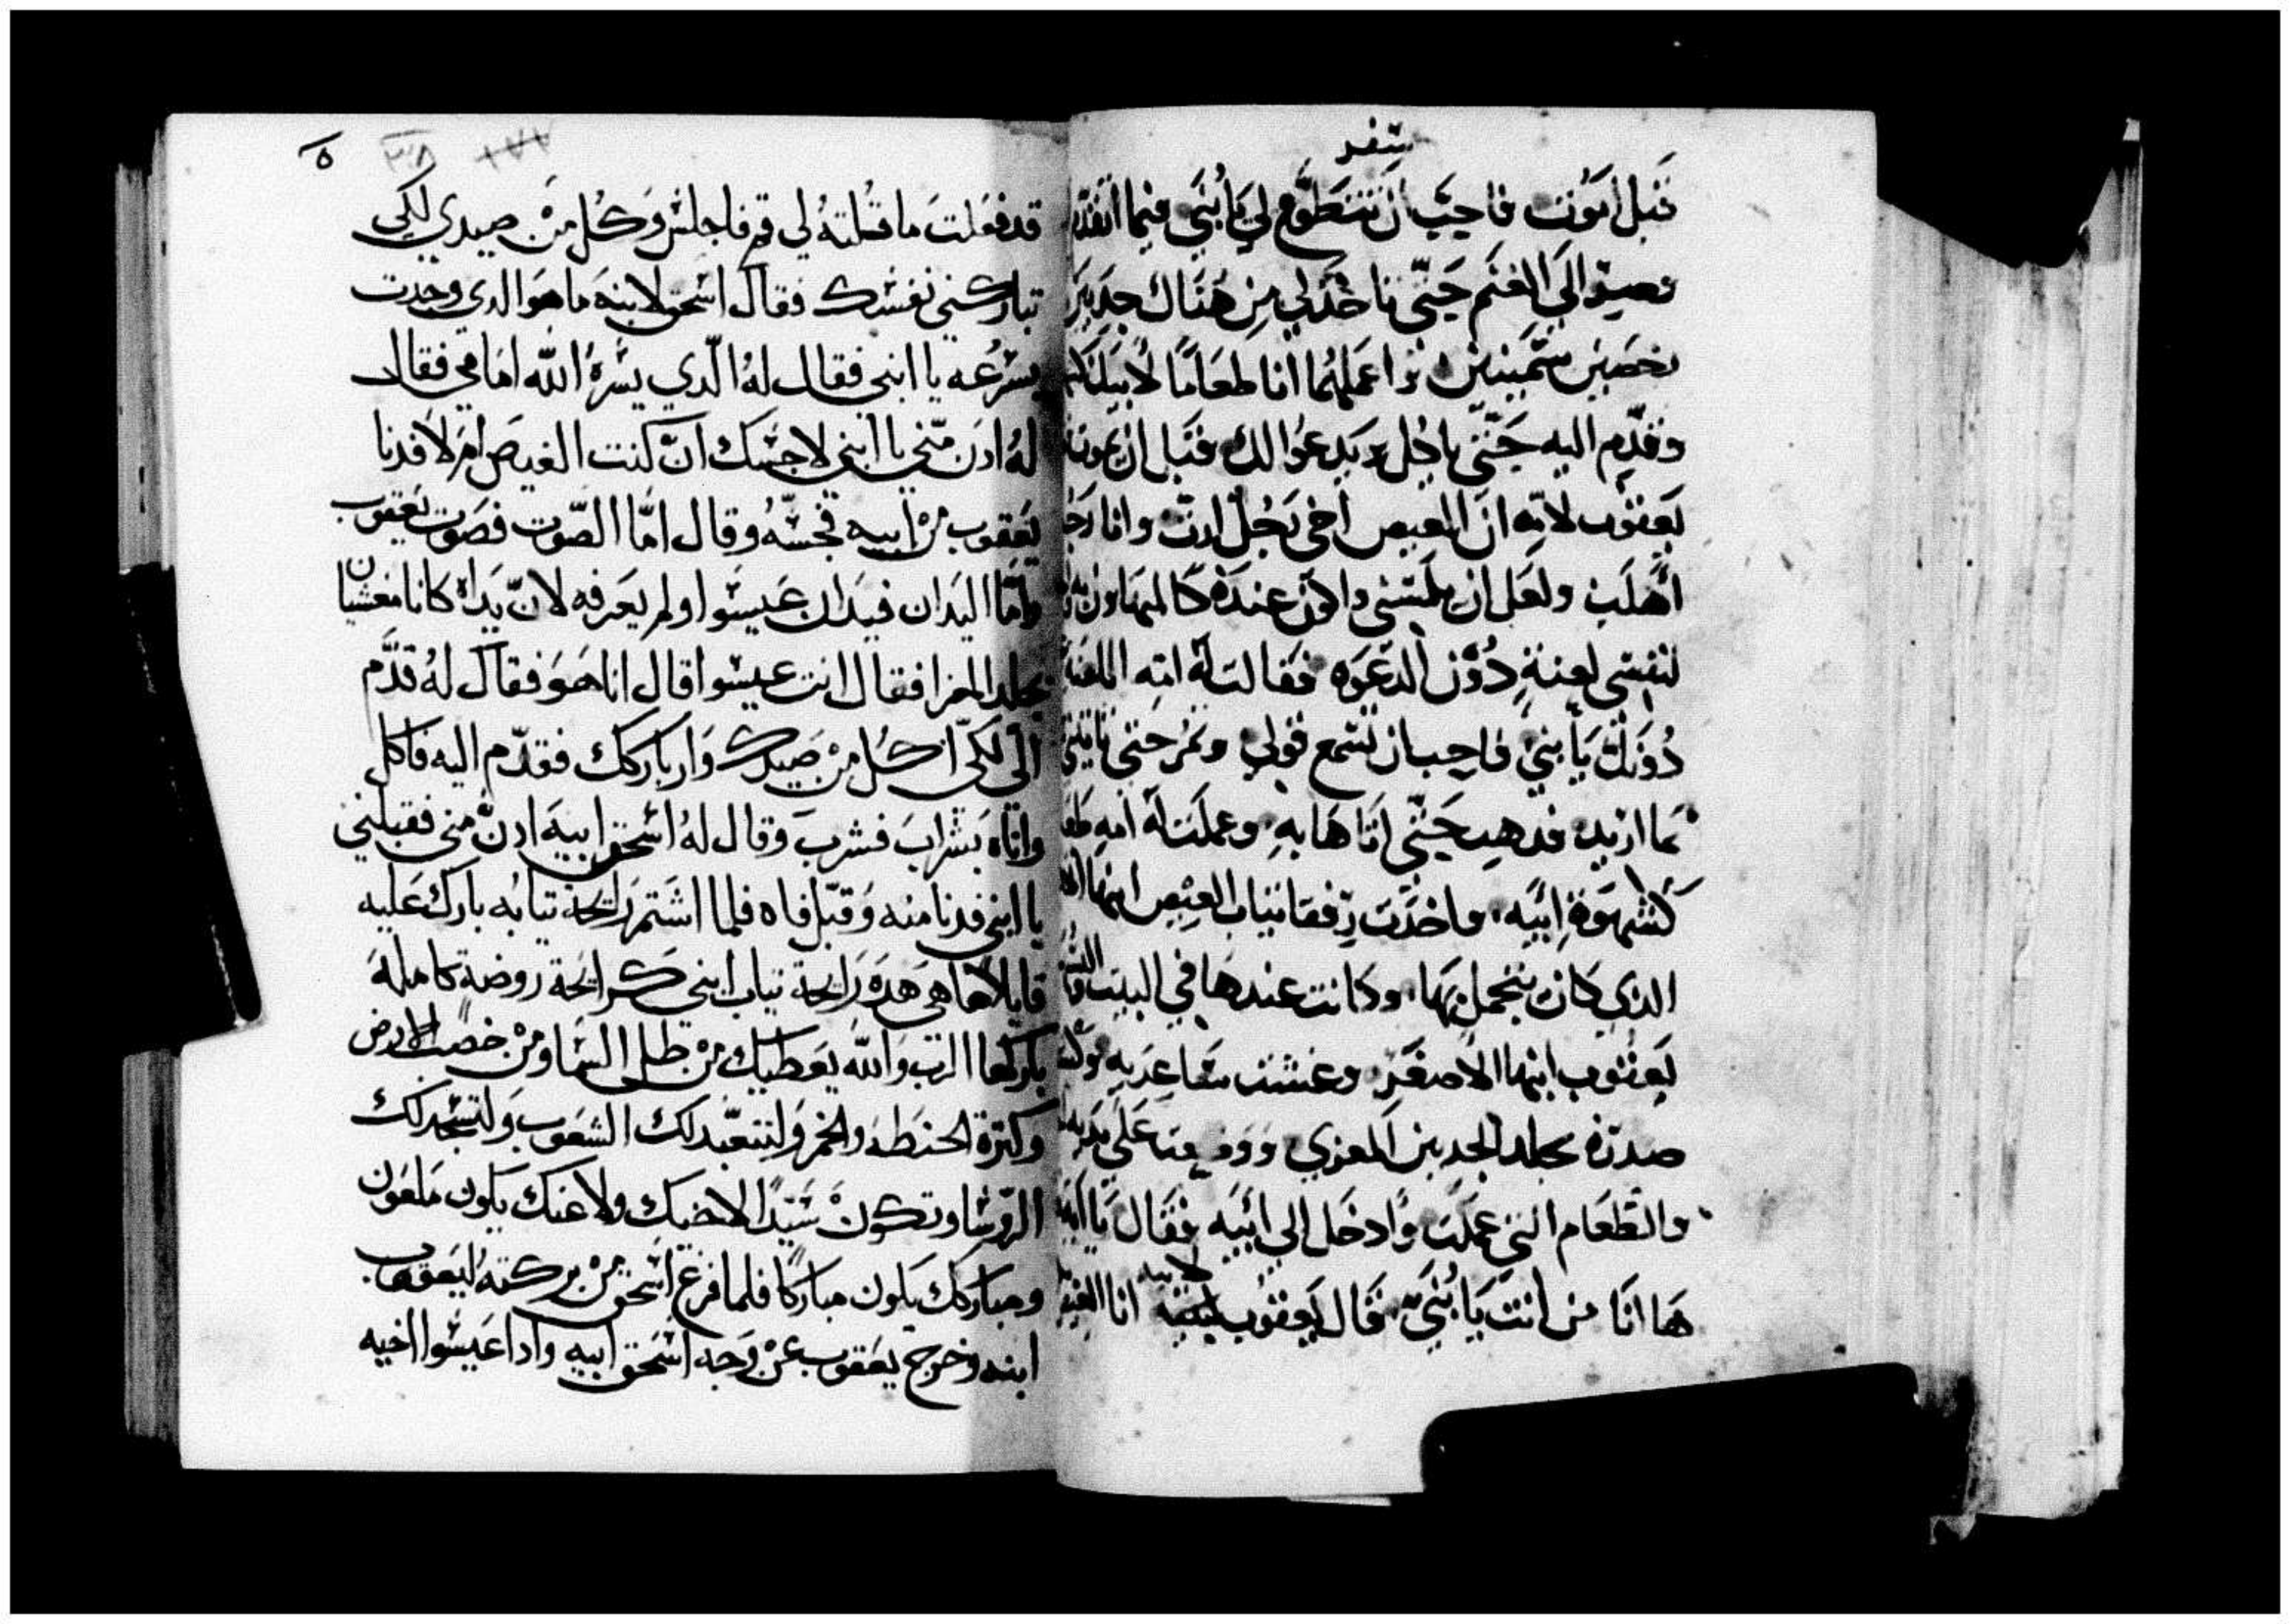 سفر
قبل اموت فاحب ان تتطوع لي يا بُنَي فيما اتقدم
تصير الى الغنم حتى تاخذ لي من هناك جديين
رخصين سمينين واعملهُما انا طعامًا لابيك
وقدّم اليه حتّى ياكل ويدعُوا لك قبل ان يموت
يعقوب لامه ان العيص اخى رَجُل ازبّ وانا رَجُل
أهلَب ولعَل ان يلمسَني واكون عنده كالمتهاون
لنفسي لعنةٍ دُوْن الدعوَه فقالت لَهُ امّه اللعنة
دُونَك يا بنيَ فاحب ان تسمع قولي وتمُر حتى تاتيني
بما اريد فذهب حتّى اتَا هَا بهِ وعملَت لَهُ امهِ
كشهوَة ابيَه واخذَت رفقا ثياب العيص ابنها
الذي كان يتجمل بهَا وكانت عندهَا في البيت
يعقوب ابنها الاصغَر وغشت ساعديه
صدره بجلد الجديين المعزي ووضعت علَى يديه
والطعَام التي عملَت وادخَل الي ابيَه فقال يا ابتِ
هَا انَا من انت يَا بُنَيّ قال يَعقوب لابيه انا العيص
٥
٣٨ ١٧٧
قد فعَلتَ ما قُلتهُ لي قم فاجلس وَكُل منْ صيدي لكي
تباركني نفسك فقال اسحق لابنهَ ما هوَ الدي وجدت
بسُرعه يا ابني فقال لهُ الّدي يسّرهُ الله امَامي فقال
لهُ ادن منّي يا ابني لاجسّك انّ كنت العيصَ امَ لا فدنا
يَعَقوب منْ ابيه فجسّهُ وقال امّا الصّوت فصَوت يَعقوب
وامّا اليَدان فيَدان عَيسوا ولم يعَرفه لانّ يَداهُ كانا مغشيان
بجلد المعزا فقال انت عيسوا قال انا هوَ فقال لهُ قدَّم
الَى لكّى اكُل منْ صَيدك وَاباركك فقدّم اليه فاكل
واتاه بَشرابَ فشربَ وقال لهُ اسحق ابيهَ ادنّ منى فقبلني
يا ابنى فدنا منه وَقبّل فاه فلما اشتمّ رَايحة تيابُه بارك عَليه
قايلاً ها هى هَده رَايحة تياب ابنى كرايحة روضة كاملهَ
باركها الرّب وَالله يعَطيك منْ طل السّما ومنْ خصب الارض
وكترة الحنطهَ والخمر وَلتتعبّد لك الشعَوب وَلتسجد لك
الرّوسَا وتكَونْ سَيّدًا لاخيك ولاعنك يكون مَلعَون
ومباركك يكون مباركًا فلما فرغ اسحق منْ بركته ليَعقوب
ابنه وخرج يعَقوب عنْ وَجه اسحق ابيه وادا عَيسوا اخيه